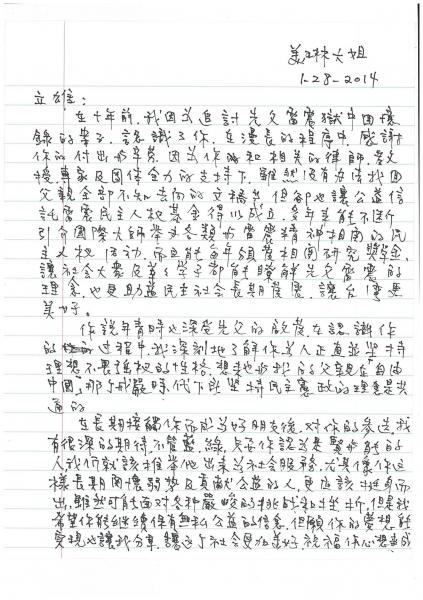 美琳大姐
1-28-2014
立雄：
在十年前，我因為追討先父雷震獄中回憶
錄的學子，認識了你，在漫長的程序中，感謝
你的付出與辛勞，因為你和相关的律師
專家及團体全力的支持下，雖然没有法找回
父親全部不知去向的文稿，但卻也讓公益信
託雷震民主人权基金得以成立，多年来能不断
引介國際大師學者各類与雷震精神相関的民
主人权活动，而且能每年頒發相関研究獎學金，
讓社会大眾及學子都有了解先父雷震的
理念，也更助益民主社会長期發展，讓台灣更
美好。
你說年青時也深受先父的啟蒙，在認識你
的过程中，我深刻地了解你為人正直並堅持
理想，不畏强权的性格，想来也与我的父親在「自由
中國」那个时代下所堅持民主憲政的理念是共
通的
在長期接觸你而成為好朋友後，对你的參选我
有很深的期待，不管藍、綠，只要你認為是賢能的
人我们就該推舉他出来為社会服務，尤其像你这
樣長期関懷弱勢及貢献公益的人，更应該挺身而
出，雖然可能面对各种嚴峻的挑战和挫折，但是我
希望你能继續保有無私公益的信念，但願你的夢想能
實現也讓我分享，讓這个社会更加美好，祝福你心想事成